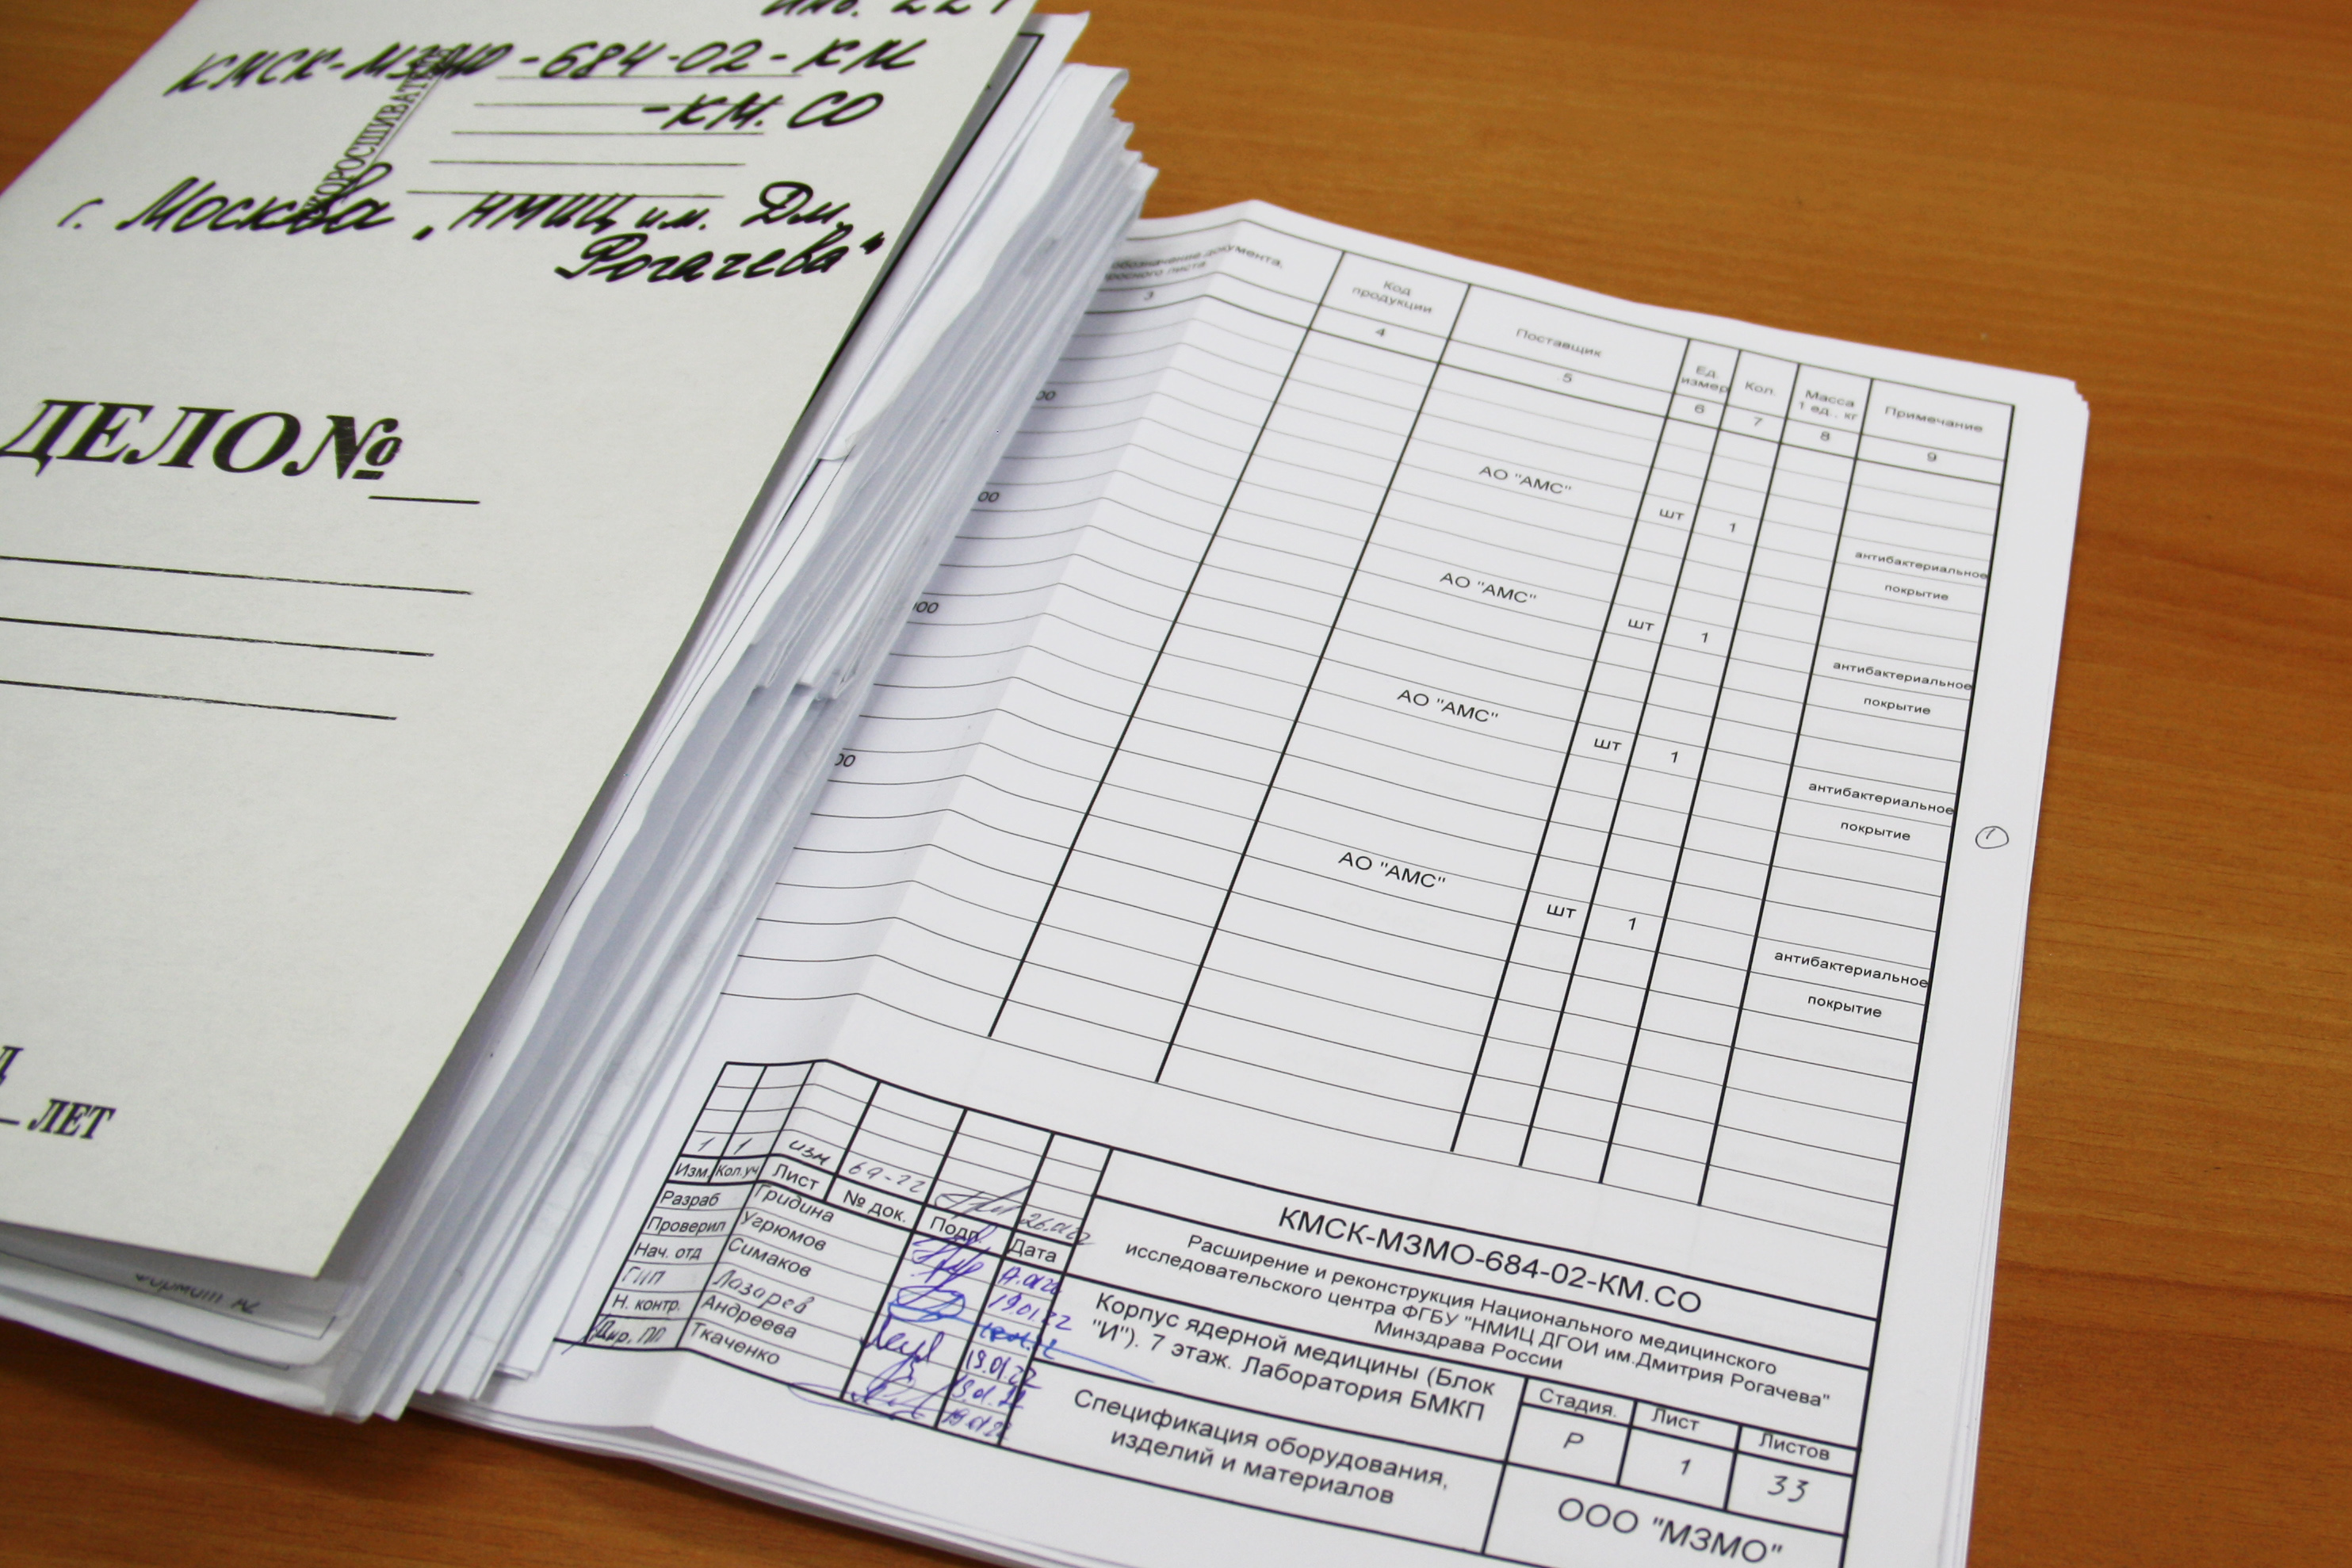 КМСК-МЗМО-684-02-КМ
-КМ.СО
СКОРОСШИВАТЕЛЬ
г. Москва, "НМИЦ им. Дм.
Рогачева"
ДЕЛО №
ЛЕТ
обозначение документа,
опросного листа
Код
продукции
Поставщик
Ед.
измер
Кол.
Масса
1 ед., кг
Примечание
3 4 5 6 7 8 9
АО "АМС" шт 1
антибактериальное
покрытие
АО "АМС" шт 1
антибактериальное
покрытие
АО "АМС" шт 1
антибактериальное
покрытие
АО "АМС" шт 1
антибактериальное
покрытие
1
1 1 изм 69-22 26.01.22
Изм. Кол.уч Лист № док. Подп. Дата
Разраб Гридина
Проверил Угрюмов 19.01.22
Нач. отд Симаков
ГИП Лазарев 19.01.22
Н. контр. Андреева 19.01.22
Дир. ПП Ткаченко 19.01.22
КМСК-МЗМО-684-02-КМ.СО
Расширение и реконструкция Национального медицинского
исследовательского центра ФГБУ "НМИЦ ДГОИ им.Дмитрия Рогачева"
Минздрава России
Корпус ядерной медицины (Блок
"И"). 7 этаж. Лаборатория БМКП
Стадия. Лист Листов
Р 1 33
Спецификация оборудования,
изделий и материалов
ООО "МЗМО"